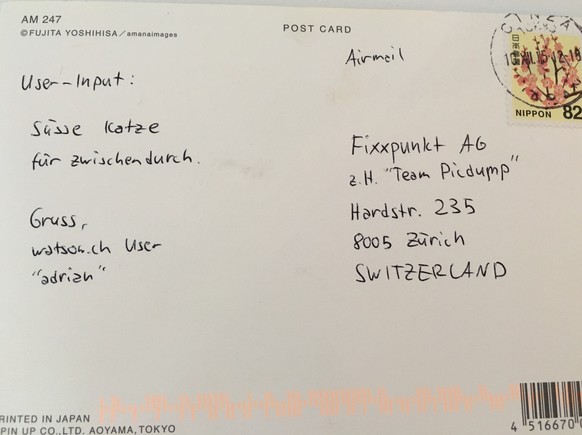 AM 247
©FUJITA YOSHIHISA/amanaimages
POST CARD
Airmail
日本郵便
NIPPON 82
User-Input:
Süsse Katze
für zwischendurch.
Gruss,
watson.ch User
"adrian"
Fixxpunkt AG
z.H. "Team Picdump"
Hardstr. 235
8005 Zürich
SWITZERLAND
PRINTED IN JAPAN
PIN UP CO.,LTD. AOYAMA,TOKYO
4 516670